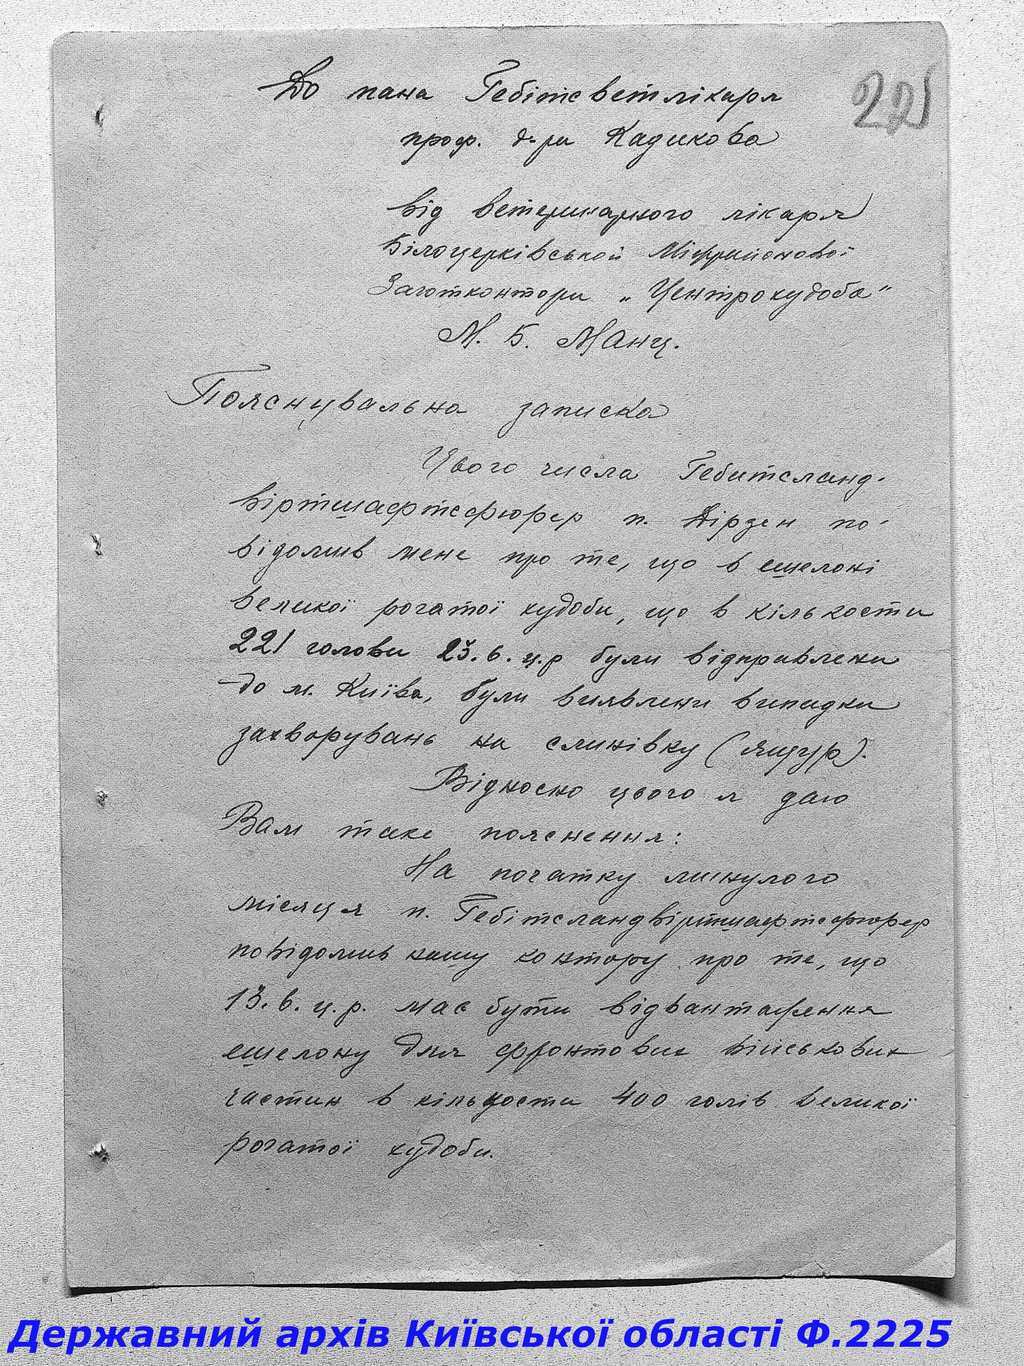 До пана Гебітсветлікаря
221
проф. д-ра Кадикова
Від ветеринарного лікаря
Білоцерківської Міжрайонової
Заготконтори „Центрокудоба"
М. Б. Манц.
Пояснувальна записка
Цього числа Гебитсланд-
віртшафтсфюрер п. Дірзен по-
відомив мене про те, що в ешелоні
великої рогатої худоби, що в кількости
221 голови 23.6. ц.р були відправлени
до м. Київа, були виявлени випадки
захворувань на слинівку (ящур).
Відносно цього я даю
Вам таке пояснення:
На початку минулого
місяця п. Гебітсландвіртшафтсфюрер
повідомив нашу контору про те, що
13.6. ц.р. має бути відвантаження
ешелону для фронтових військових
частин в кількости 400 голів великої
рогатої худоби.
Державний архів Київської області Ф.2225